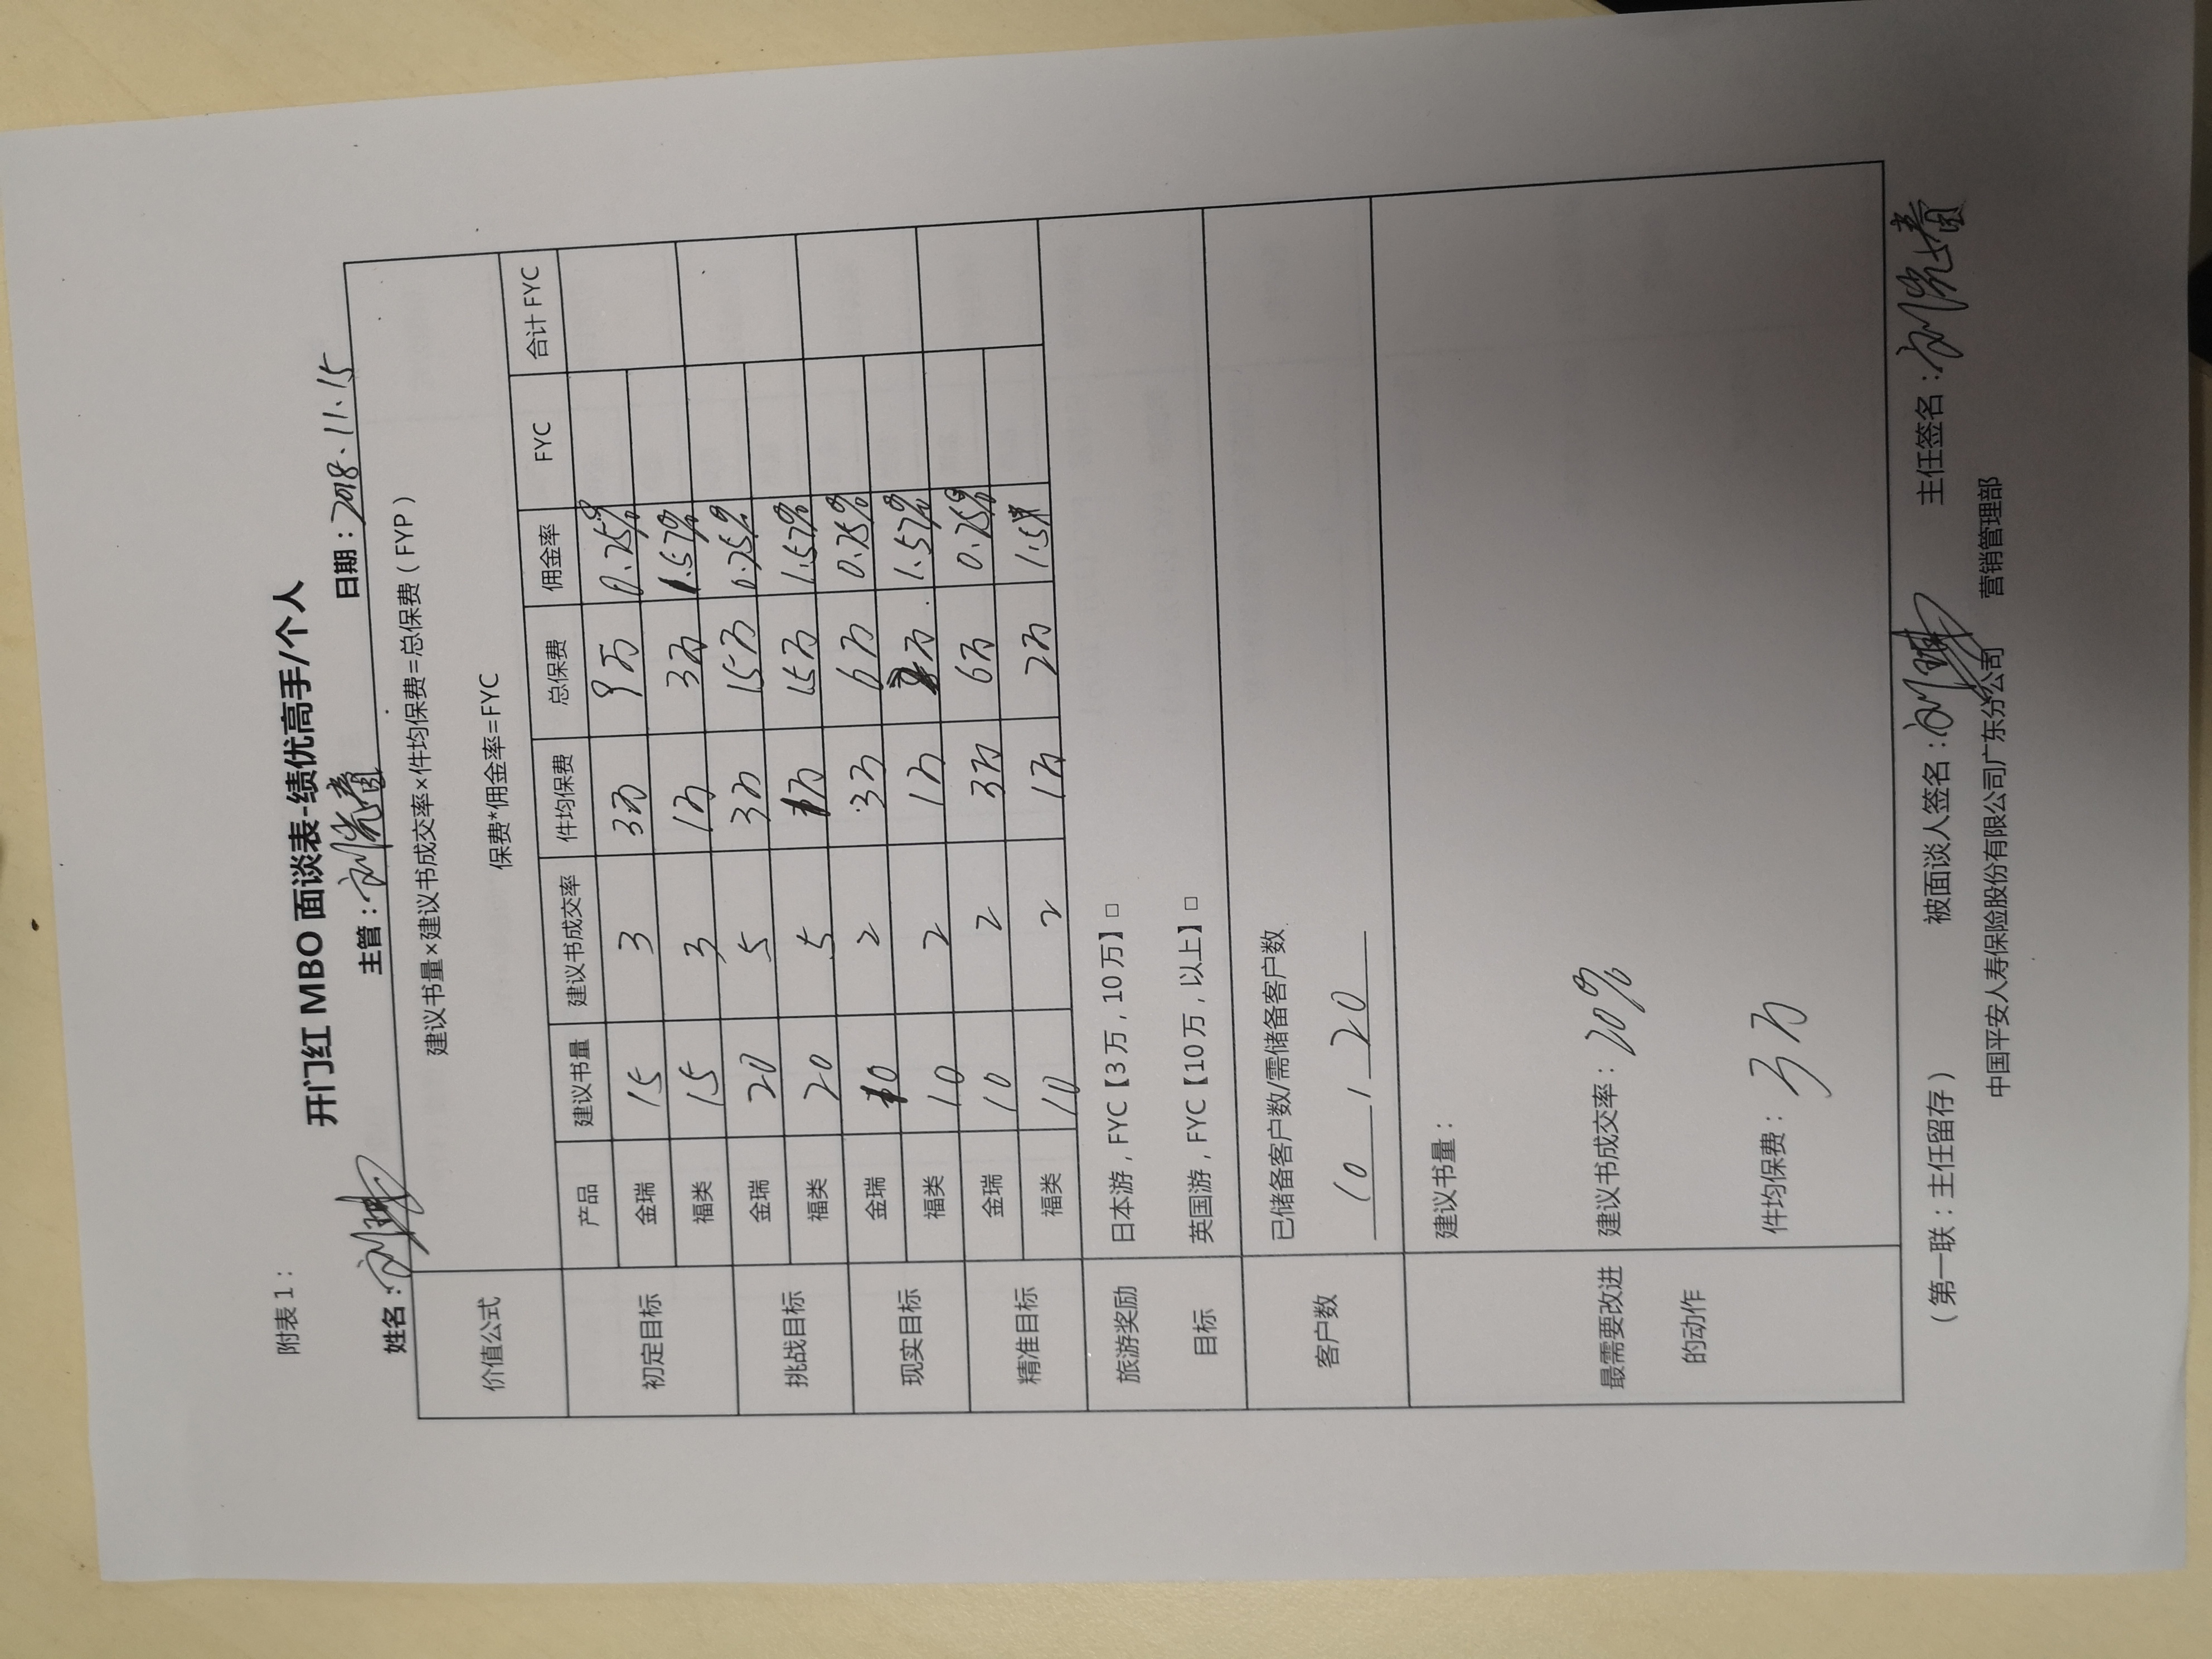 附表1：
开门红 MBO 面谈表-绩优高手/个人
姓名： 主管： 日期：2018.11.15
价值公式 建议书量×建议书成交率×件均保费=总保费（FYP）
保费*佣金率=FYC
产品 建议书量 建议书成交率 件均保费 总保费 佣金率 FYC 合计 FYC
初定目标 金瑞 15 3 3万 9万 0.25%
福类 15 3 1万 3万 1.57%
挑战目标 金瑞 20 5 3万 15万 0.25%
福类 20 5 1万 15万 1.57%
现实目标 金瑞 10 2 3万 6万 0.25%
福类 10 2 1万 2万 1.57%
精准目标 金瑞 10 2 3万 6万 0.25%
福类 10 2 1万 2万
旅游奖励 日本游，FYC【3万，10万】□
目标 英国游，FYC【10万，以上】□
客户数 已储备客户数/需储备客户数
10，20
最需要改进 建议书量：
的动作 建议书成交率：20%
件均保费：3万
（第一联：主任留存） 被面谈人签名： 主任签名：
中国平安人寿保险股份有限公司广东分公司 营销管理部